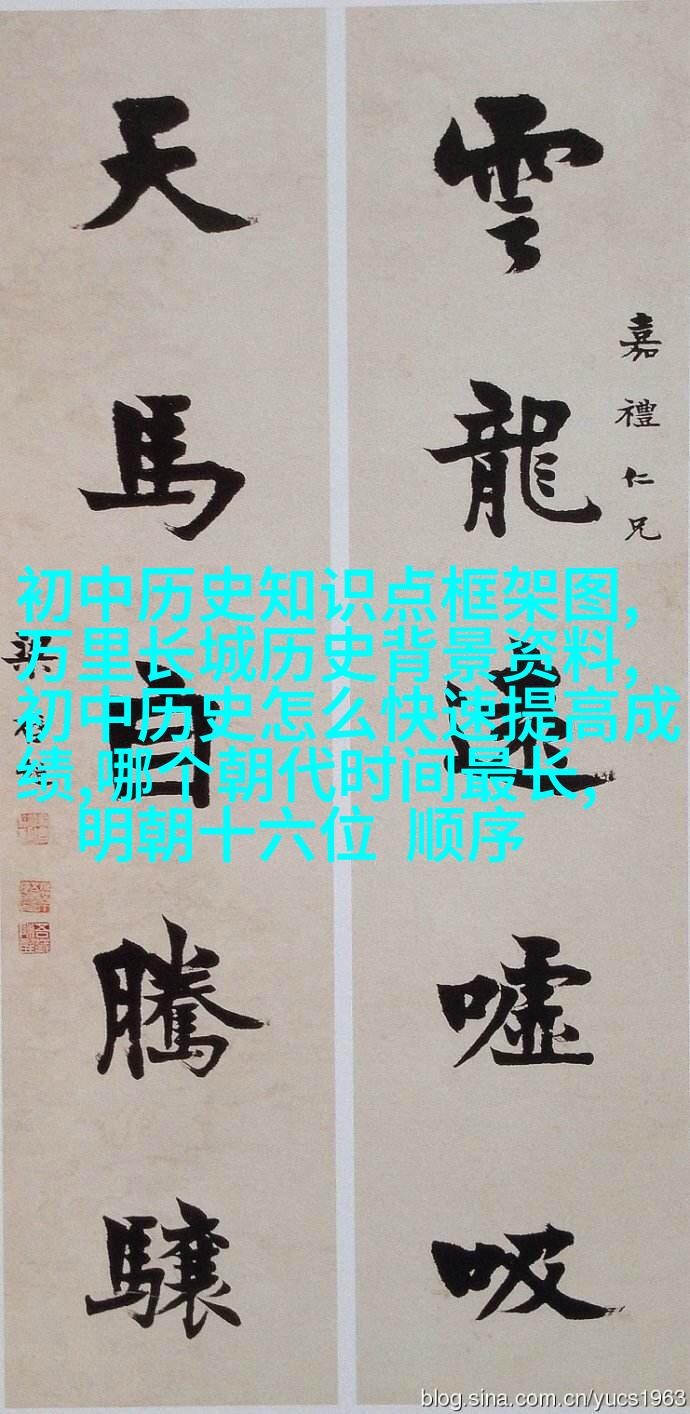 雲龍遠噓吸
嘉禮仁兄
天馬自騰驤
初中历史知识点框架图,
万里长城历史背景资料,
初中历史怎么快速提高成
绩,哪个朝代时间最长,
明朝十六位 顺序
blog.sina.com.cn/yucs1963